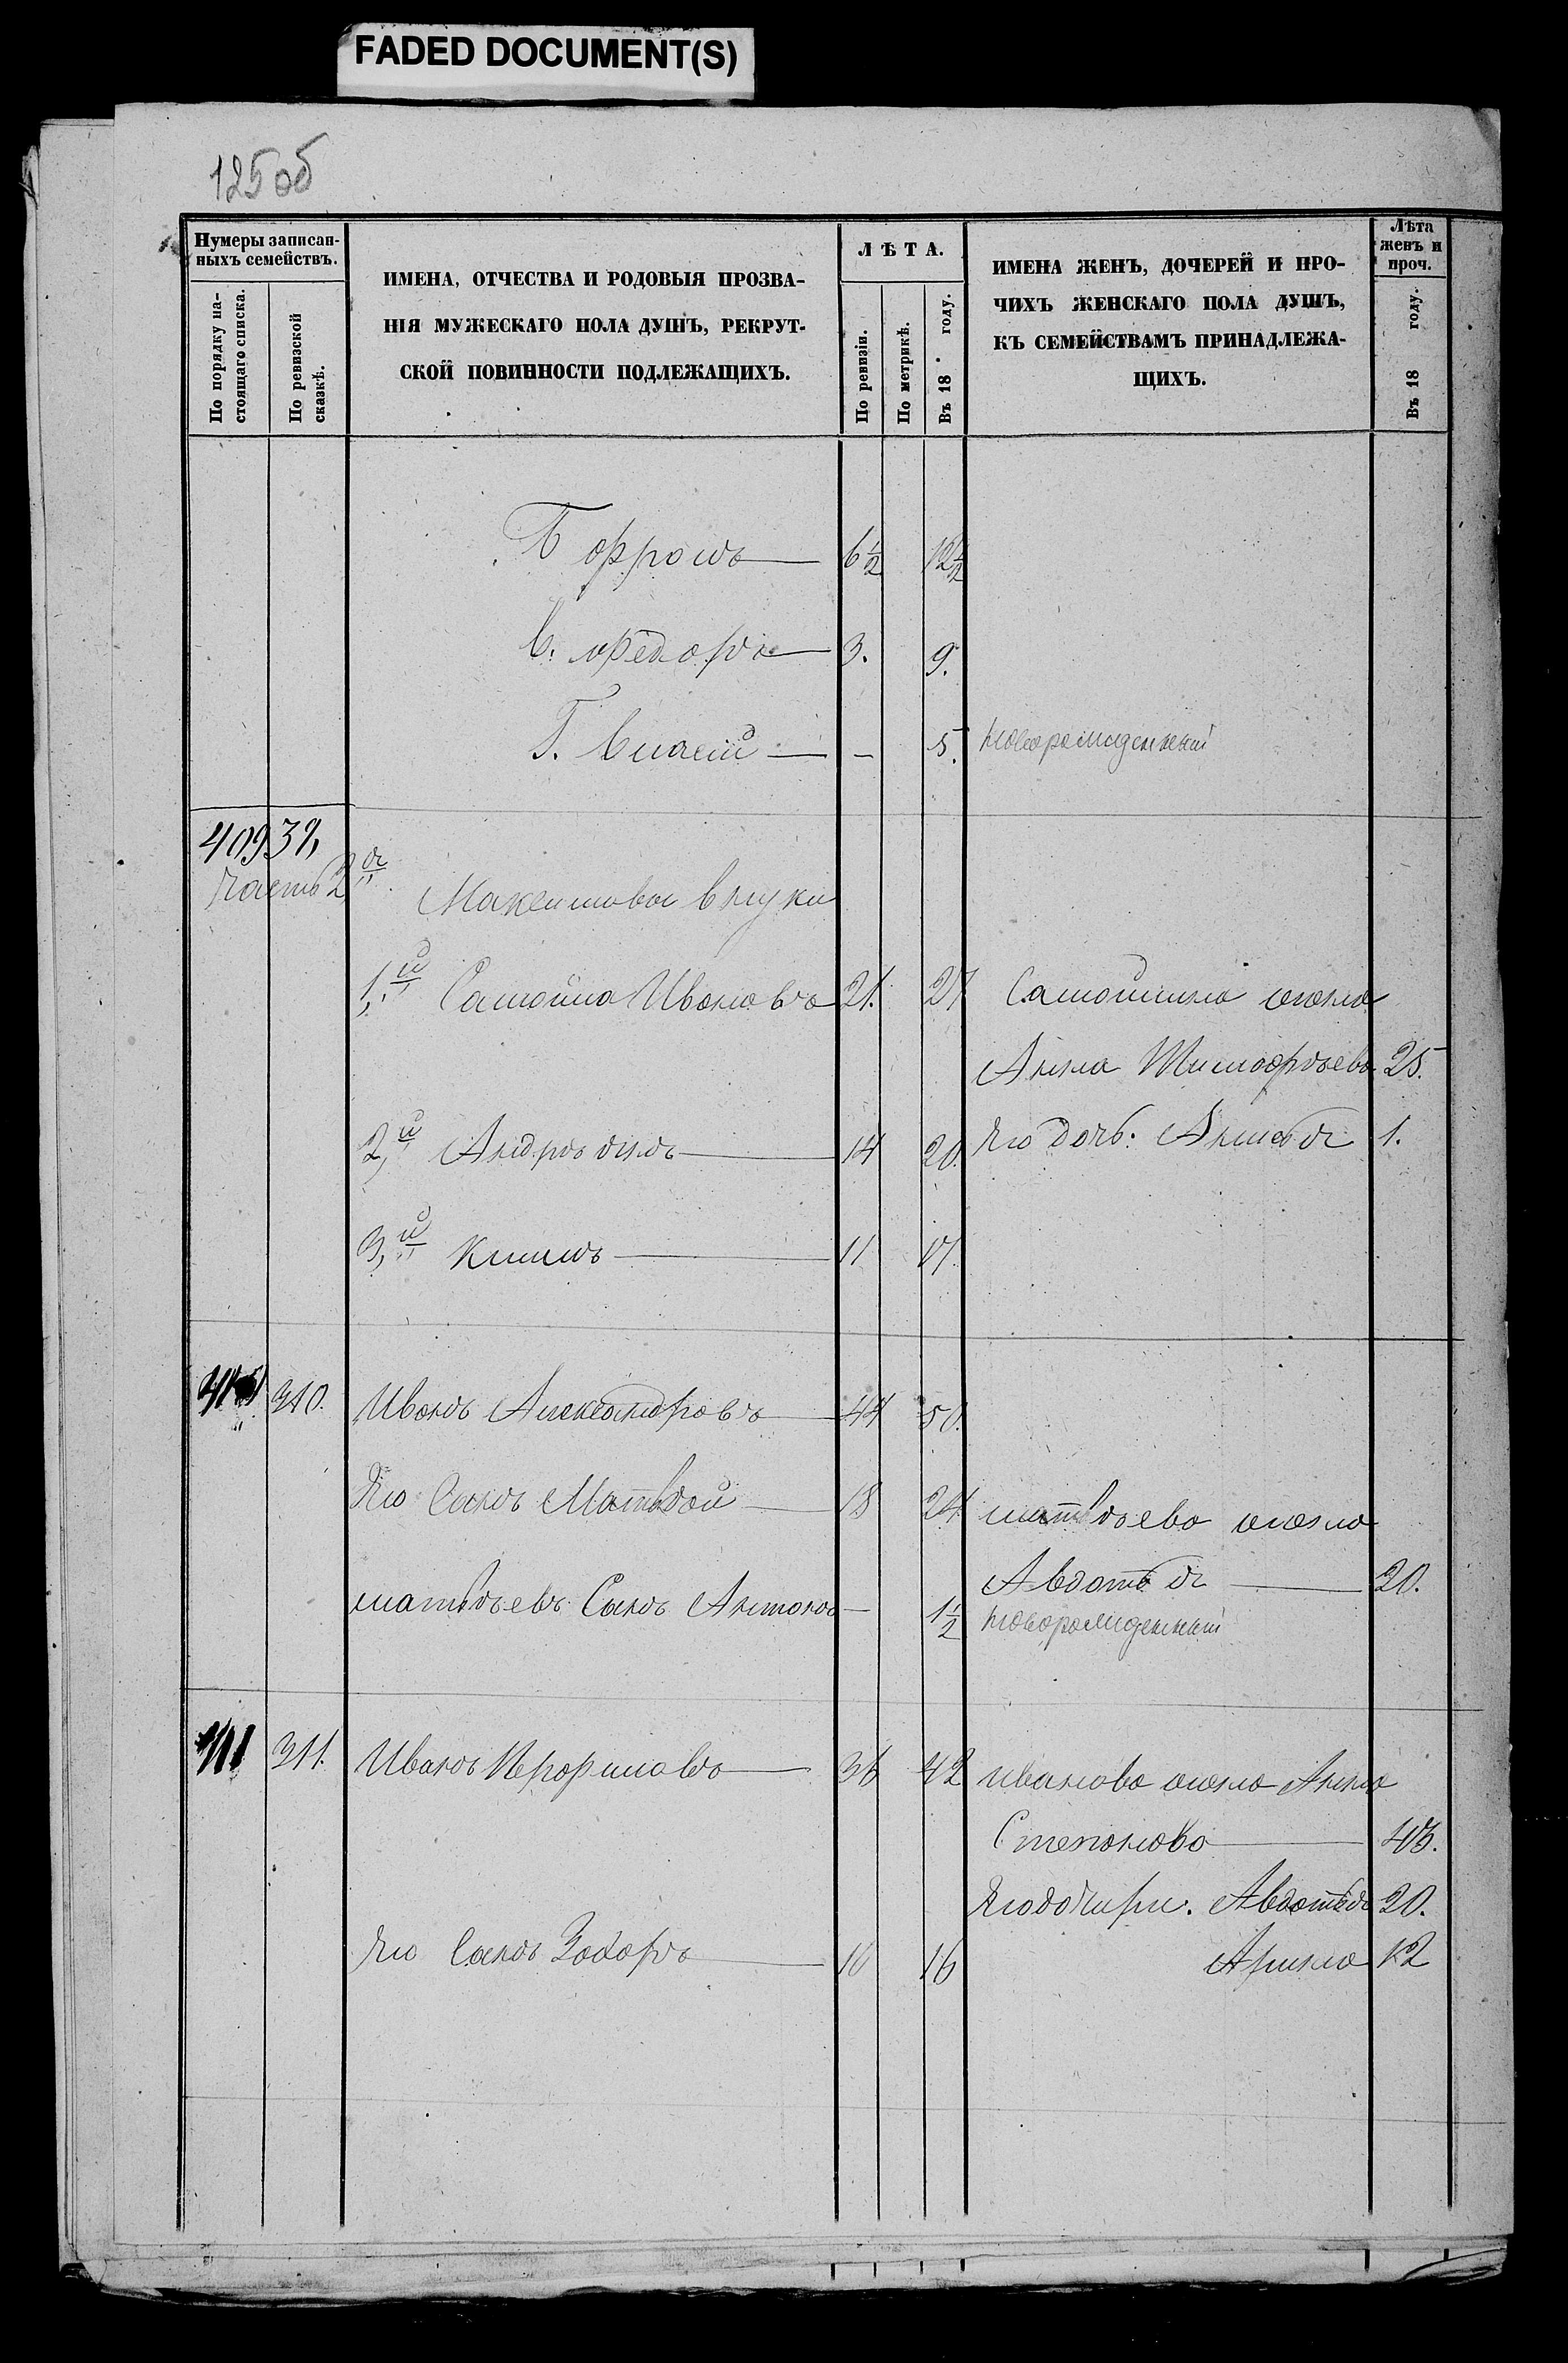 FADED DOCUMENT(S)
125 об
Нумеры записанныхъ семействъ.
По порядку настоящаго списка.
По ревизской сказкѣ.
ИМЕНА, ОТЧЕСТВА И РОДОВЫЯ ПРОЗВА-
НІЯ МУЖЕСКАГО ПОЛА ДУШЪ, РЕКРУТ-
СКОЙ ПОВИННОСТИ ПОДЛЕЖАЩИХЪ.
ЛѢТА.
По ревизіи.
По метрикѣ.
Въ 18 году.
ИМЕНА ЖЕНЪ, ДОЧЕРЕЙ И ПРО-
ЧИХЪ ЖЕНСКАГО ПОЛА ДУШЪ,
КЪ СЕМЕЙСТВАМЪ ПРИНАДЛЕЖА-
ЩИХЪ.
Лѣта
женъ и
проч.
Въ 18 году.
Б 6½ 12½
В. Федоръ 3. 9.
Г. - 5. новорожденный
409
часть 2я
Максимовы внуки
1,й Самойла Ивановъ 21. 27 Самойлина жена
Анна Тимофѣева 25.
2,й 14 20. Его дочь: 1.
3,й Климъ 11 17.
310. Иванъ Александровъ 44 50.
Его Сынъ Матвѣй 18 24 матвѣева жена
Авдотья 20.
матвѣевъ Сынъ Антонъ - 1½ новорожденный
311. Иванъ 36 42 иванова жена Анна
Степанова 43.
Его дочери: Авдотья 20.
Его Сынъ Захаръ 10 16 Арина 12